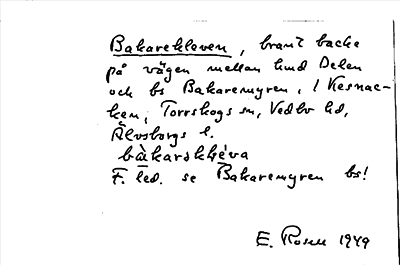 Bakarekleven, brant backe
på vägen mellan hmd Delen
och bs Bakaremyren, i Kesnac-
ken, Torrskogs sn, Vedbo hd,
Älvsborgs l.
bàkarskléva
F. led. se Bakaremyren bs!
E. Rosell 1949